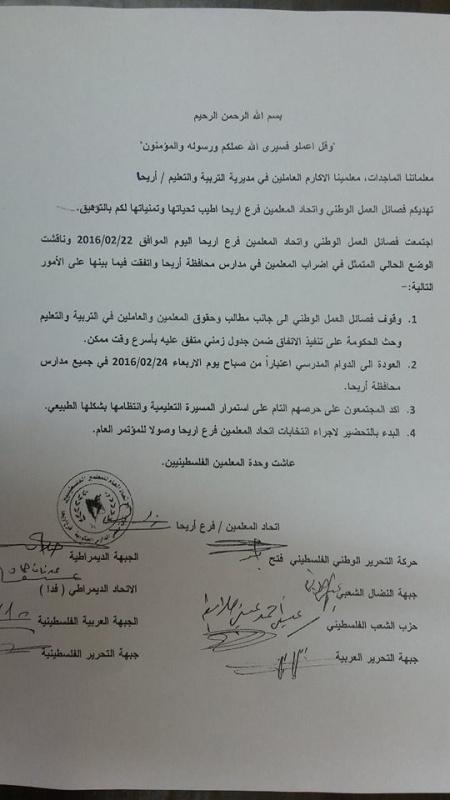 بسم الله الرحمن الرحيم
"وقل اعملو فسيرى الله عملكم ورسوله والمؤمنون"
معلماتنا الماجدات، معلمينا الاكارم العاملين في مديرية التربية والتعليم / أريحا
تهديكم فصائل العمل الوطني واتحاد المعلمين فرع اريحا اطيب تحياتها وتمنياتها لكم بالتوفيق.
اجتمعت فصائل العمل الوطني واتحاد المعلمين فرع اريحا اليوم الموافق 2016/02/22 وناقشت
الوضع الحالي المتمثل في اضراب المعلمين في مدارس محافظة أريحا واتفقت فيما بينها على الأمور
التالية:-
1. وقوف فصائل العمل الوطني الى جانب مطالب وحقوق المعلمين والعاملين في التربية والتعليم
وحث الحكومة على تنفيذ الاتفاق ضمن جدول زمني متفق عليه بأسرع وقت ممكن.
2. العودة الى الدوام المدرسي اعتباراً من صباح يوم الاربعاء 2016/02/24 في جميع مدارس
محافظة أريحا.
3. اكد المجتمعون على حرصهم التام على استمرار المسيرة التعليمية وانتظامها بشكلها الطبيعي.
4. البدء بالتحضير لاجراء انتخابات اتحاد المعلمين فرع اريحا وصولا للمؤتمر العام.
عاشت وحدة المعلمين الفلسطينيين.
اتحاد المعلمين / فرع أريحا
حركة التحرير الوطني الفلسطيني فتح
الجبهة الديمراطية
جبهة النضال الشعبي
الاتحاد الديمراطي ( فدا )
حزب الشعب الفلسطيني
الجبهة العربية الفلسطينية
جبهة التحرير العربية
جبهة التحرير الفلسطينية